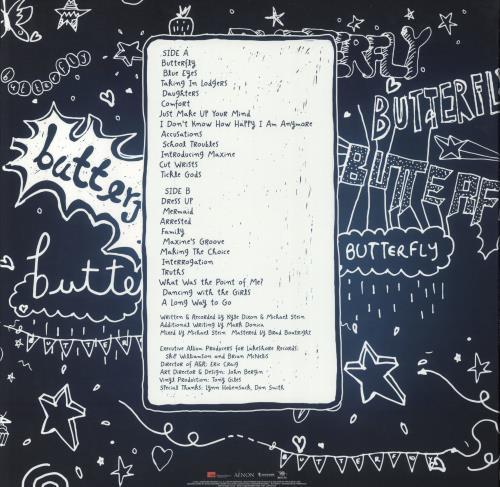 BUTTERFLY
butterfly
BUTTERFLY
butter
BUTTERF
butte
BUTTERFLY
BUTTERFLY
SIDE A
Butterfly
Blue Eyes
Taking In Lodgers
Daughters
Comfort
Just Make Up Your Mind
I Don't Know How Happy I Am Anymore
Accusations
School Troubles
Introducing Maxine
Cut Wrists
Tickle Gods
SIDE B
Dress Up
Mermaid
Arrested
Family
Maxine's Groove
Making The Choice
Interrogation
Truths
What Was the Point of Me?
Dancing with the Girls
A Long Way to Go
Written & Recorded by Kyle Dixon & Michael Stein
Additional Writing by Mark Donica
Mixed by Michael Stein Mastered by Brad Boatright
Executive Album Producers for Lakeshore Records:
Skip Williamson and Brian McNelis
Director of A&R: Eric Craig
Art Director & Design: John Bergin
Vinyl Production: Tony Giles
Special Thanks: Lynn Hobensack, Dan Smith
AENON